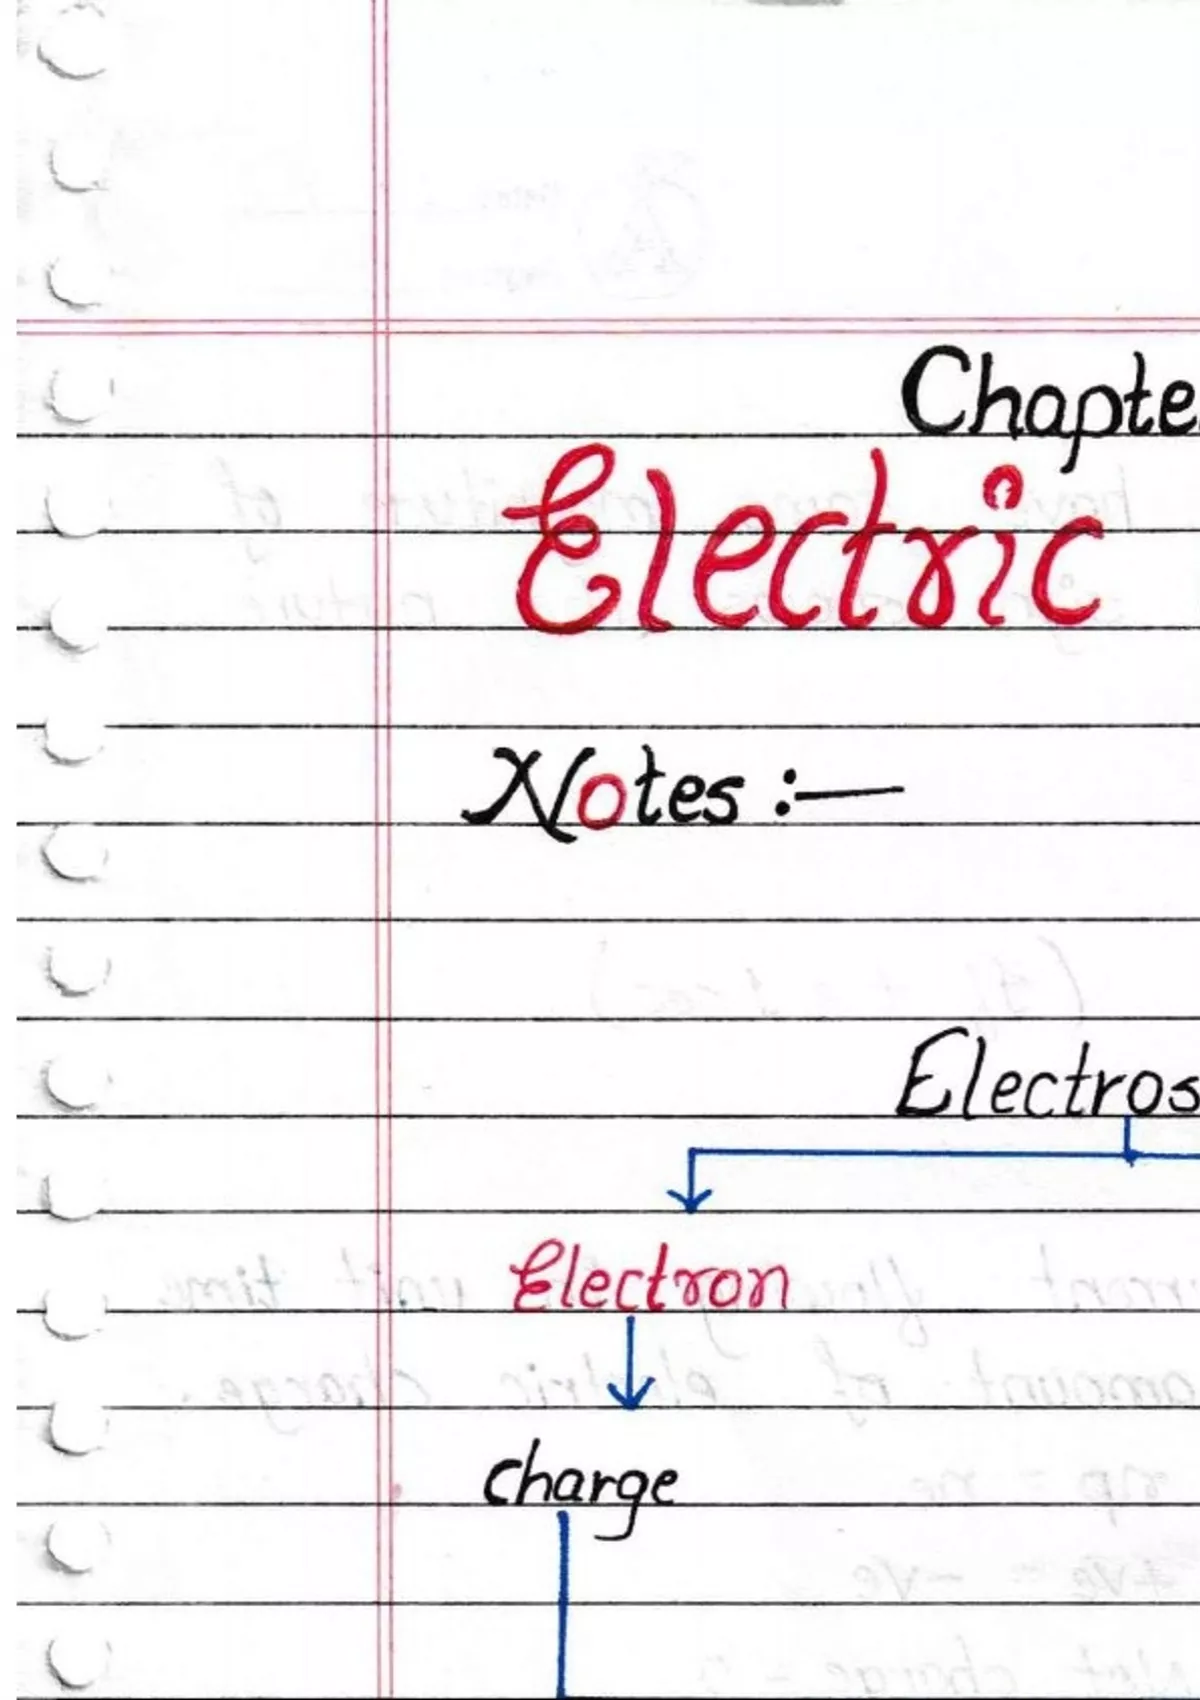 Chapte
Electric
Notes :—
Electros
Electron
charge